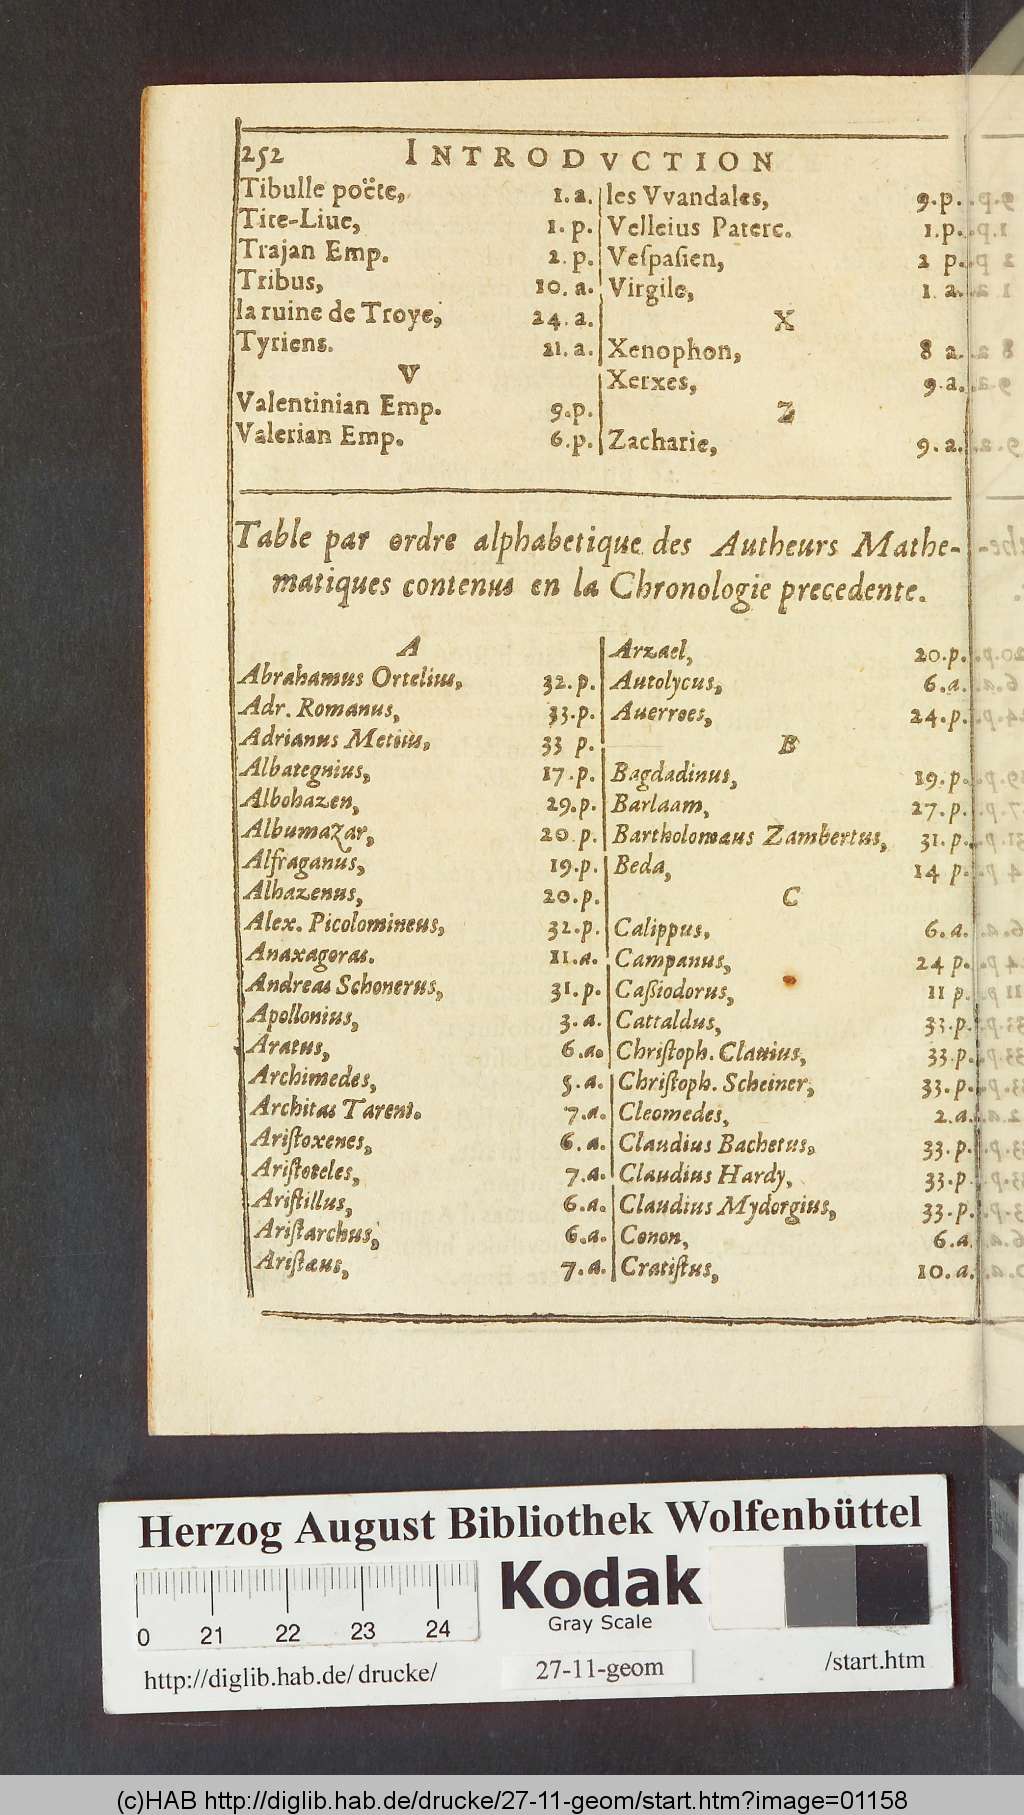 252 INTRODVCTION
Tibulle poëte, 1. a.
Tite-Liue, 1. p.
Trajan Emp. 2. p.
Tribus, 10. a.
la ruine de Troye, 24. a.
Tyriens. 21. a.
V
Valentinian Emp. 9.p.
Valerian Emp. 6.p.
les Vvandales, 9.p.
Velleius Paterc. 1.p.
Veſpaſien, 2 p.
Virgile, 1 a.
X
Xenophon, 8 a.
Xerxes, 9.a.
Z
Zacharie, 9. a.
Table par ordre alphabetique des Autheurs Mathe-
matiques contenus en la Chronologie precedente.
A
Abrahamus Ortelius, 32. p.
Adr. Romanus, 33.p.
Adrianus Metius, 33 p.
Albategnius, 17.p.
Albohazen, 29.p.
Albumazar, 20 p.
Alfraganus, 19.p.
Alhazenus, 20.p.
Alex. Picolomineus, 32.p.
Anaxagoras. 11.a.
Andreas Schonerus, 31.p.
Apollonius, 3.a.
Aratus, 6.a.
Archimedes, 5.a.
Architas Tarent. 7.a.
Ariſtoxenes, 6.a.
Ariſtoteles, 7.a.
Ariſtillus, 6.a.
Ariſtarchus, 6.a.
Ariſtæus, 7.a.
Arzael, 20.p.
Autolycus, 6.a.
Auerroes, 24.p.
B
Bagdadinus, 19.p.
Barlaam, 27.p.
Bartholomæus Zambertus, 31.p.
Beda, 14 p.
C
Calippus, 6.a.
Campanus, 24 p.
Caſſiodorus, 11 p.
Cattaldus, 33.p.
Chriſtoph. Clauius, 33.p.
Chriſtoph. Scheiner, 33.p.
Cleomedes, 2.a.
Claudius Bachetus, 33.p.
Claudius Hardy, 33.p
Claudius Mydorgius, 33.p.
Conon, 6.a
Cratiſtus, 10.a.
Herzog August Bibliothek Wolfenbüttel
Kodak
Gray Scale
0 21 22 23 24
http://diglib.hab.de/ drucke/ 27-11-geom /start.htm
(c)HAB http://diglib.hab.de/drucke/27-11-geom/start.htm?image=01158